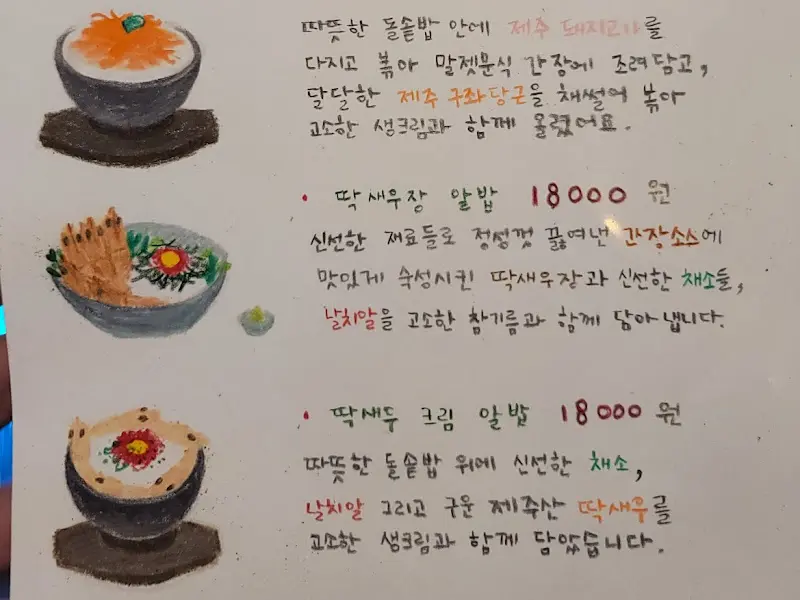 따뜻한 돌솥밥 안에 제주 돼지고기를
다지고 볶아 말젯문식 간장에 조려담고,
달달한 제주 구좌당근을 채썰어 볶아
고소한 생크림과 함께 올렸어요.
• 딱새우장 알밥 18000 원
신선한 재료들로 정성껏 끓여낸 간장소스에
맛있게 숙성시킨 딱새우장과 신선한 채소들,
날치알을 고소한 참기름과 함께 담아냅니다.
• 딱새우 크림 알밥 18000 원
따뜻한 돌솥밥 위에 신선한 채소,
날치알 그리고 구운 제주산 딱새우를
고소한 생크림과 함께 담았습니다.